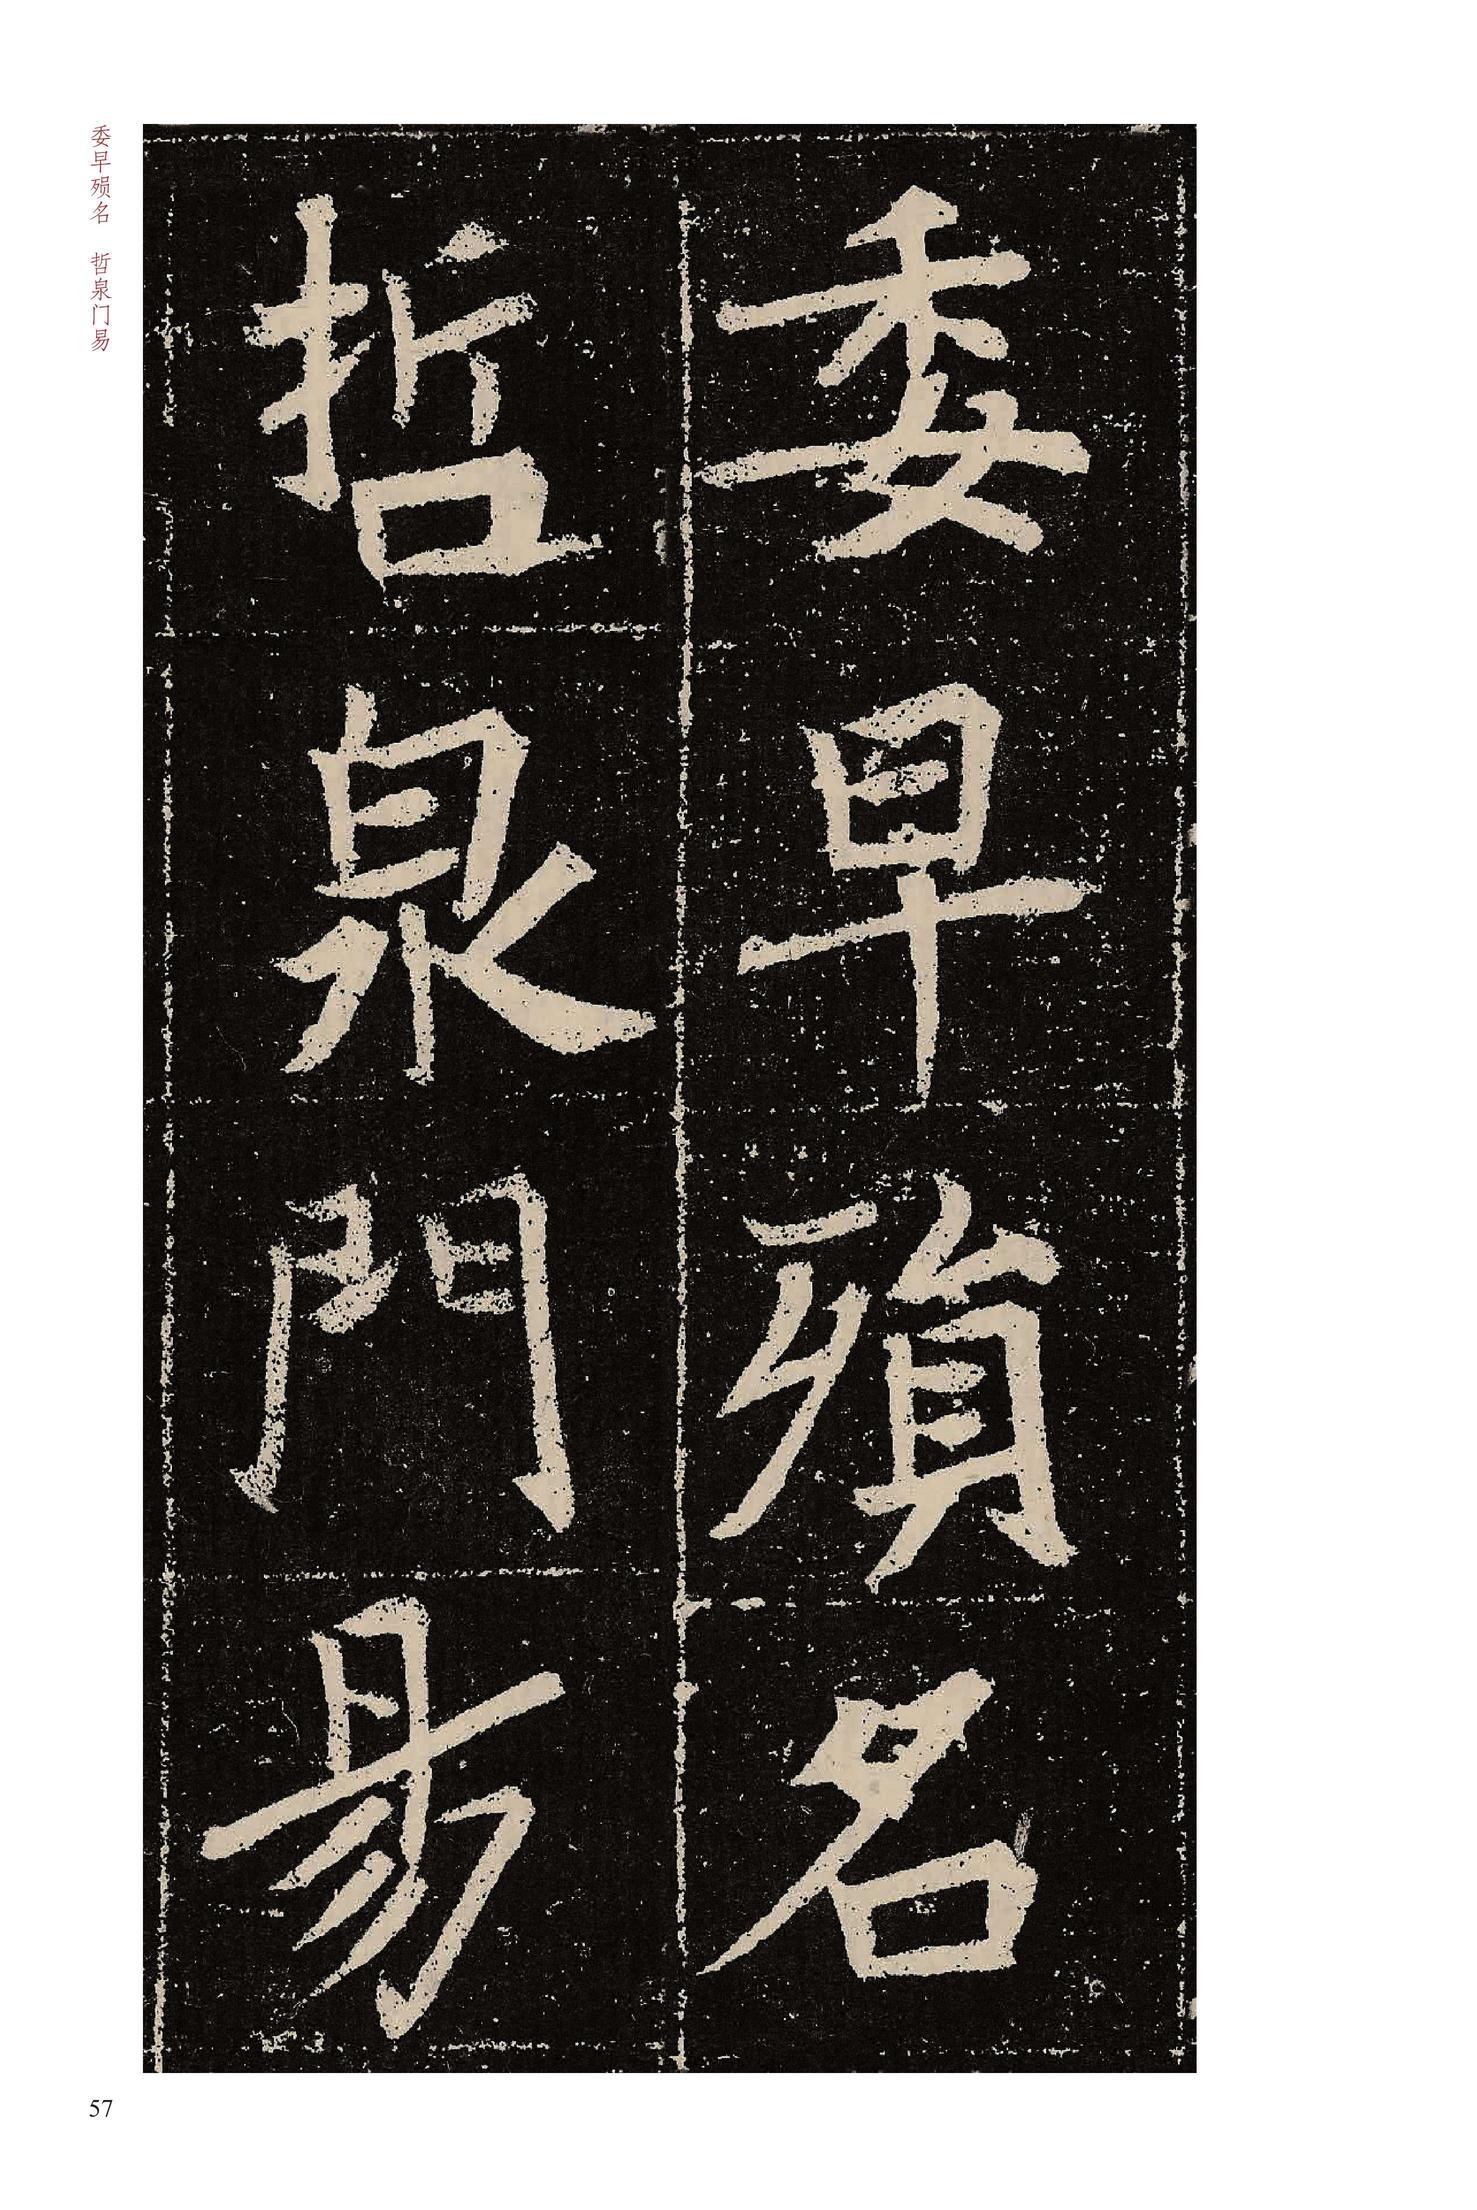 委早殞名
哲泉門易
委早殒名　哲泉门易
57